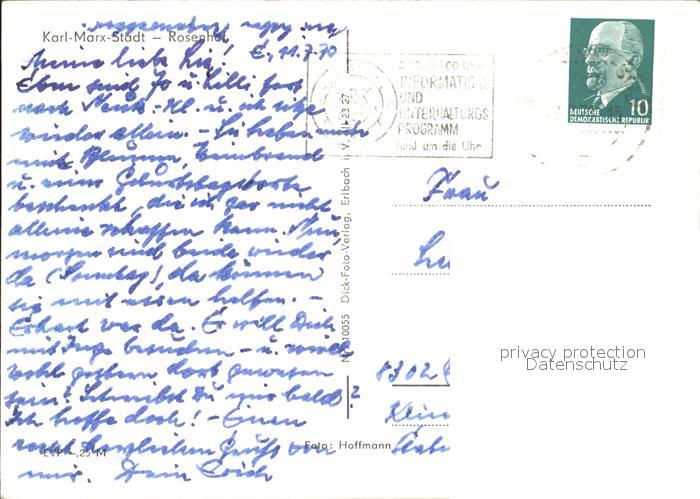 Karl-Marx-Stadt – Rosenhof
E., 11.7.70
Meine liebe Lu!
Eben sind Jo u. Lilli fort
nach u. ich sitze
wieder allein. – Sie haben mich
mit Blumen, Weinbrand
u. einer Geburtstagstorte
beschenkt, die ich gar nicht
alleine schaffen kann. Nun,
morgen sind beide wieder
da (Sonntag), da können
sie mit essen helfen. –
Erhart war da. Er will Dich
mit Inge besuchen – u. wird
wohl gestern dort gewesen
sein? Schreibst Du mir bald?
Ich hoffe doch! – Einen
recht herzlichen Gruß von
mir. Dein Erich
EVP –,25 M
Foto: Hoffmann
Nr. 10055 Dick-Foto-Verlag, Erlbach i. V. III-23-27
INFORMATIONS
UND
UNTERHALTUNGS
PROGRAMM
rund um die Uhr
10
DEUTSCHE
DEMOKRATISCHE REPUBLIK
Frau
Lu
8302
Klein
privacy protection
Datenschutz